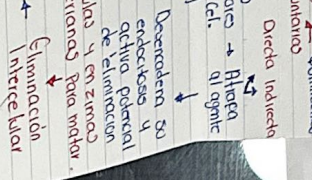 untarias
Directa Indirecta
ores → Atrapa
al agente
Cel.
Desencadena su
endocitosis y
activa potencial
de eliminación
ulas y enzimas
erianas para matar.
Eliminación
Intercelular